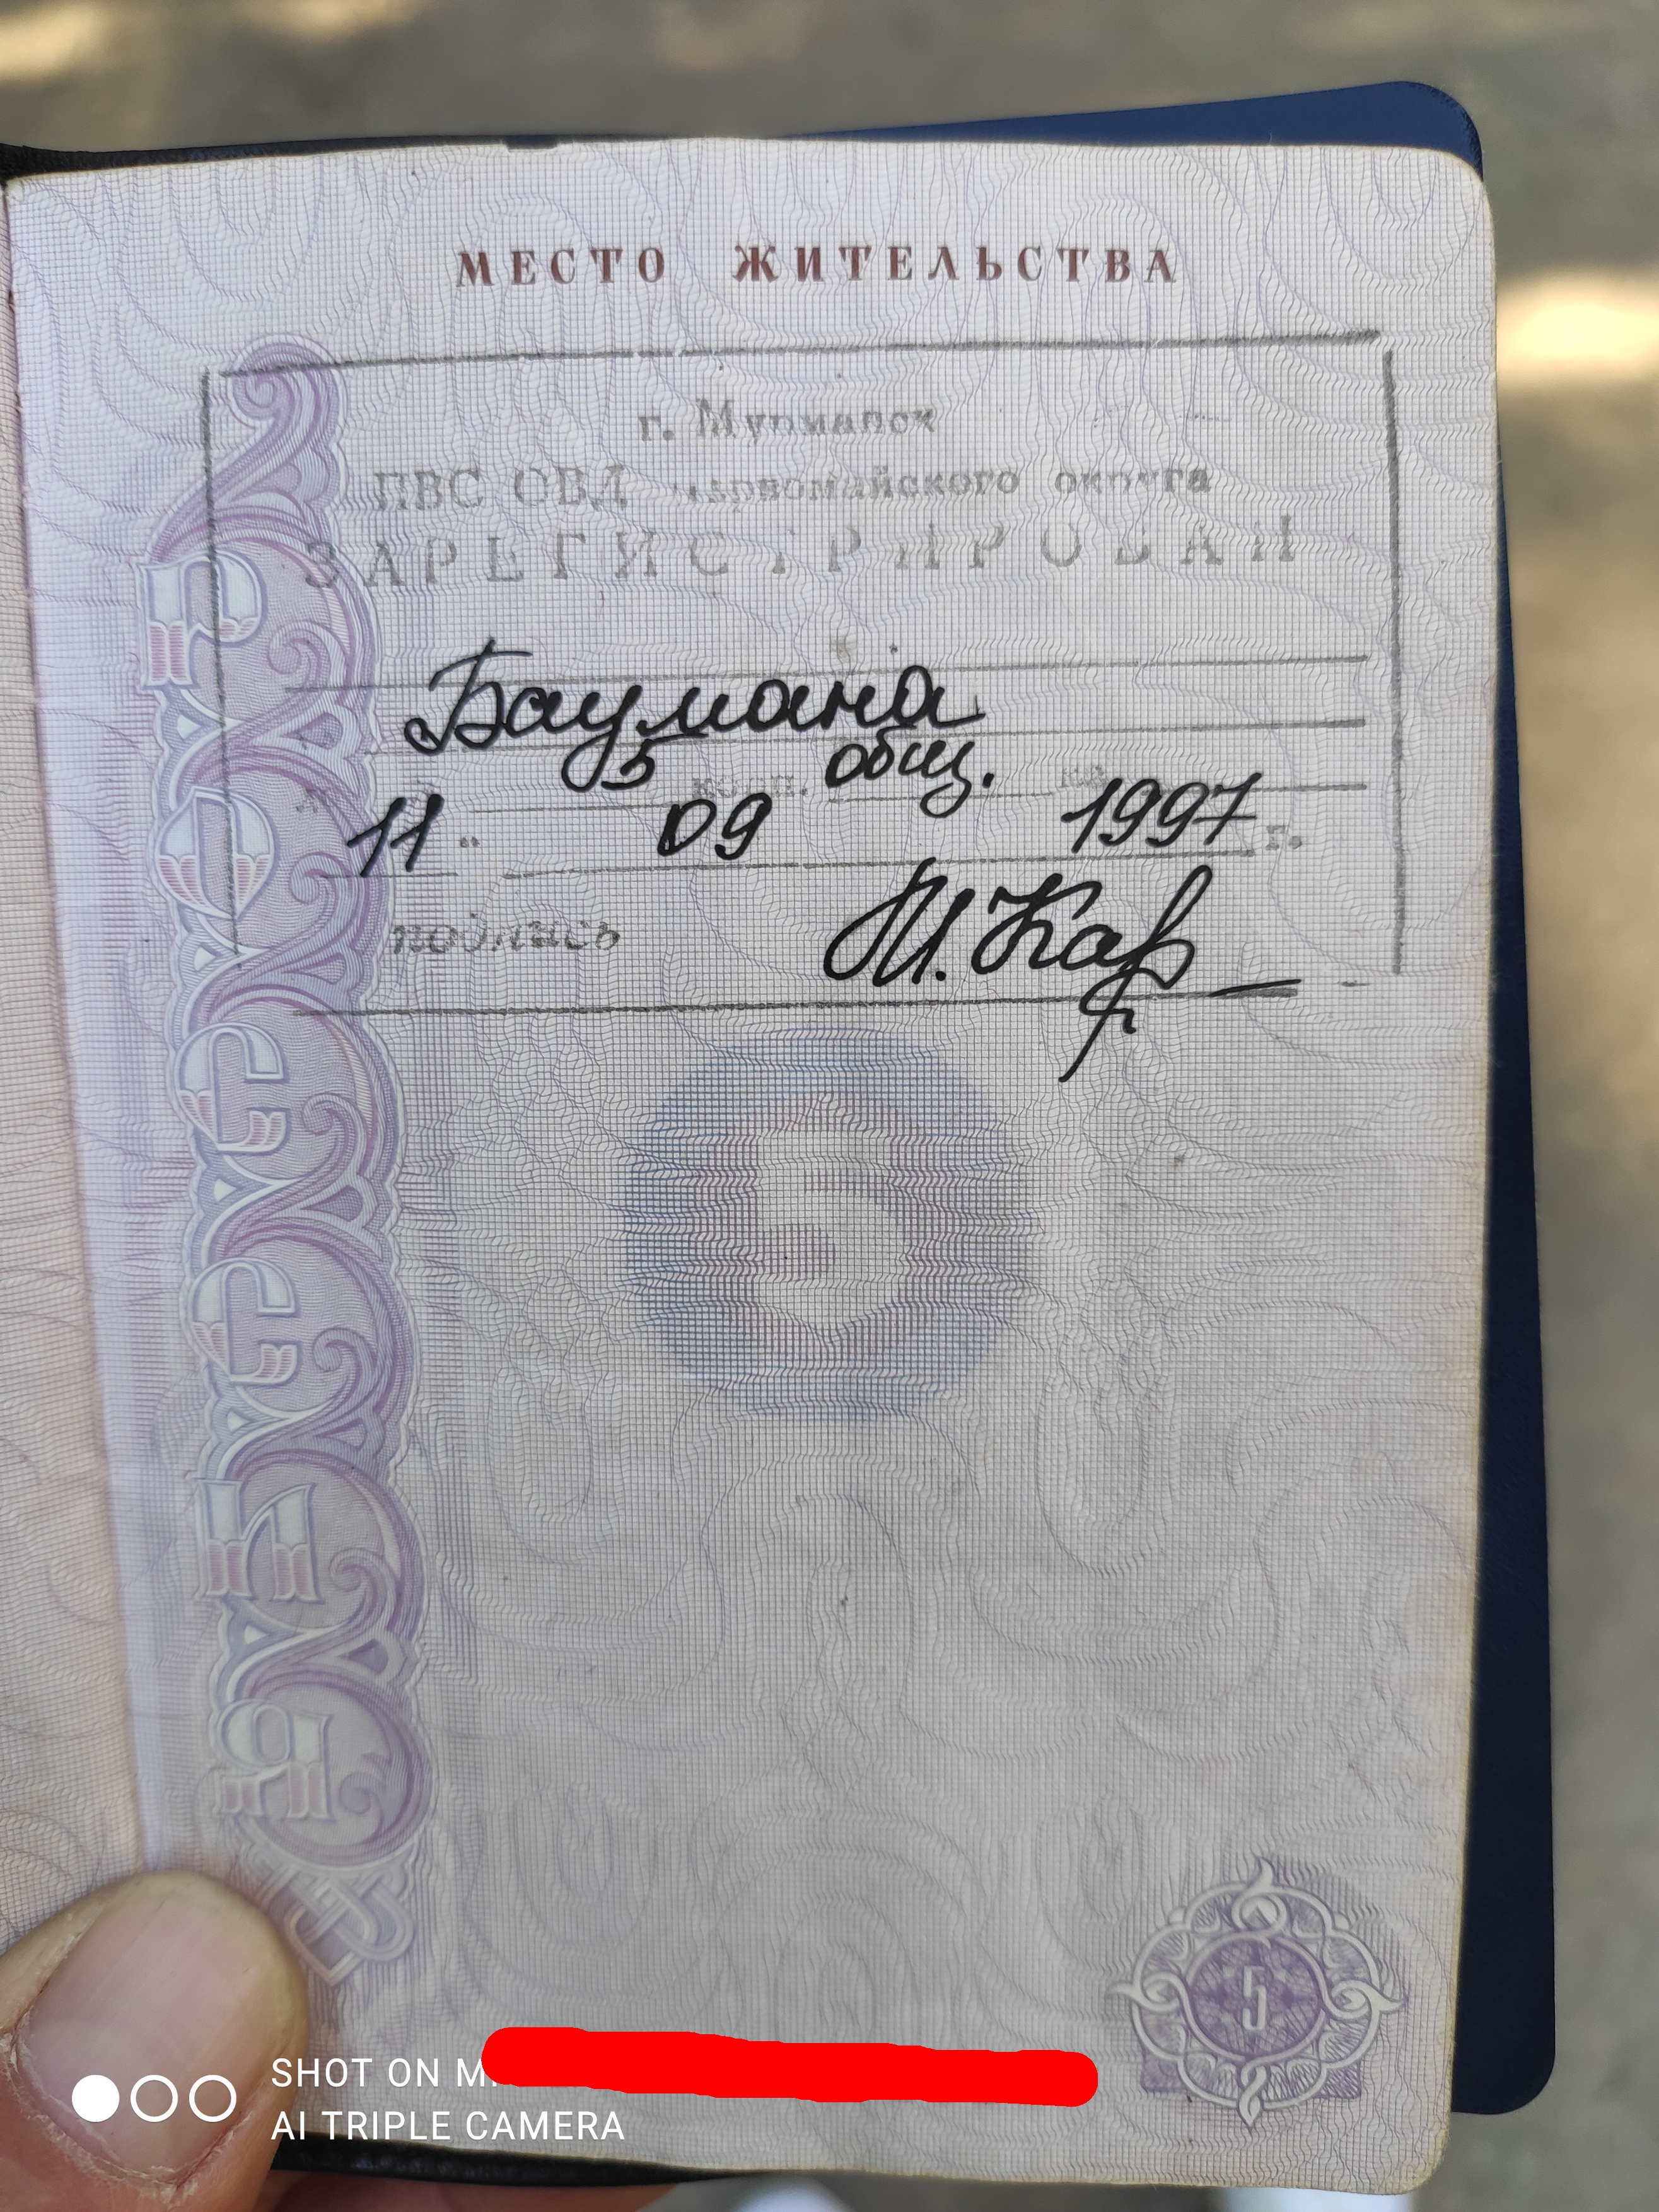 МЕСТО ЖИТЕЛЬСТВА
г. Мурманск
ПВС ОВД Первомайского округа
ЗАРЕГИСТРИРОВАН
Баумана
5 корп. общ. кв.
11 " 09 1997 г.
подпись И. Кар
РОССИЯ
5
SHOT ON MI
AI TRIPLE CAMERA